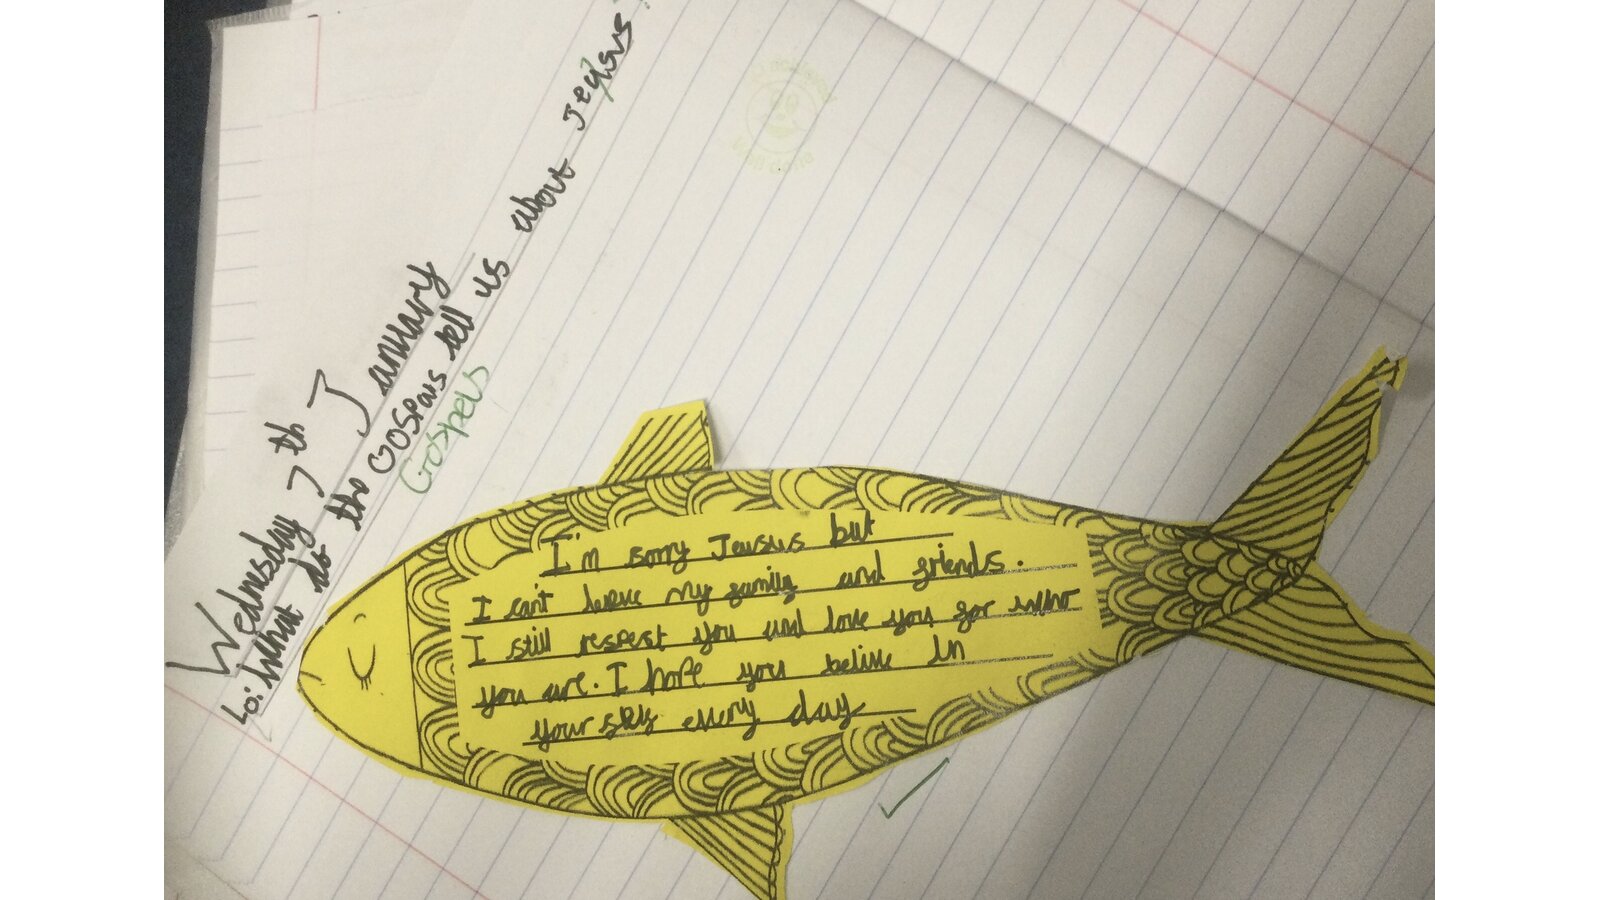 Wednesday 7th January
Lo: what do the Gospels tell us about Jeusus?
Gospels
I'm sorry Jeusus but
I can't leave my family and friends.
I still respect you and love you for who
you are. I hope you belive in
your self every day
Well done